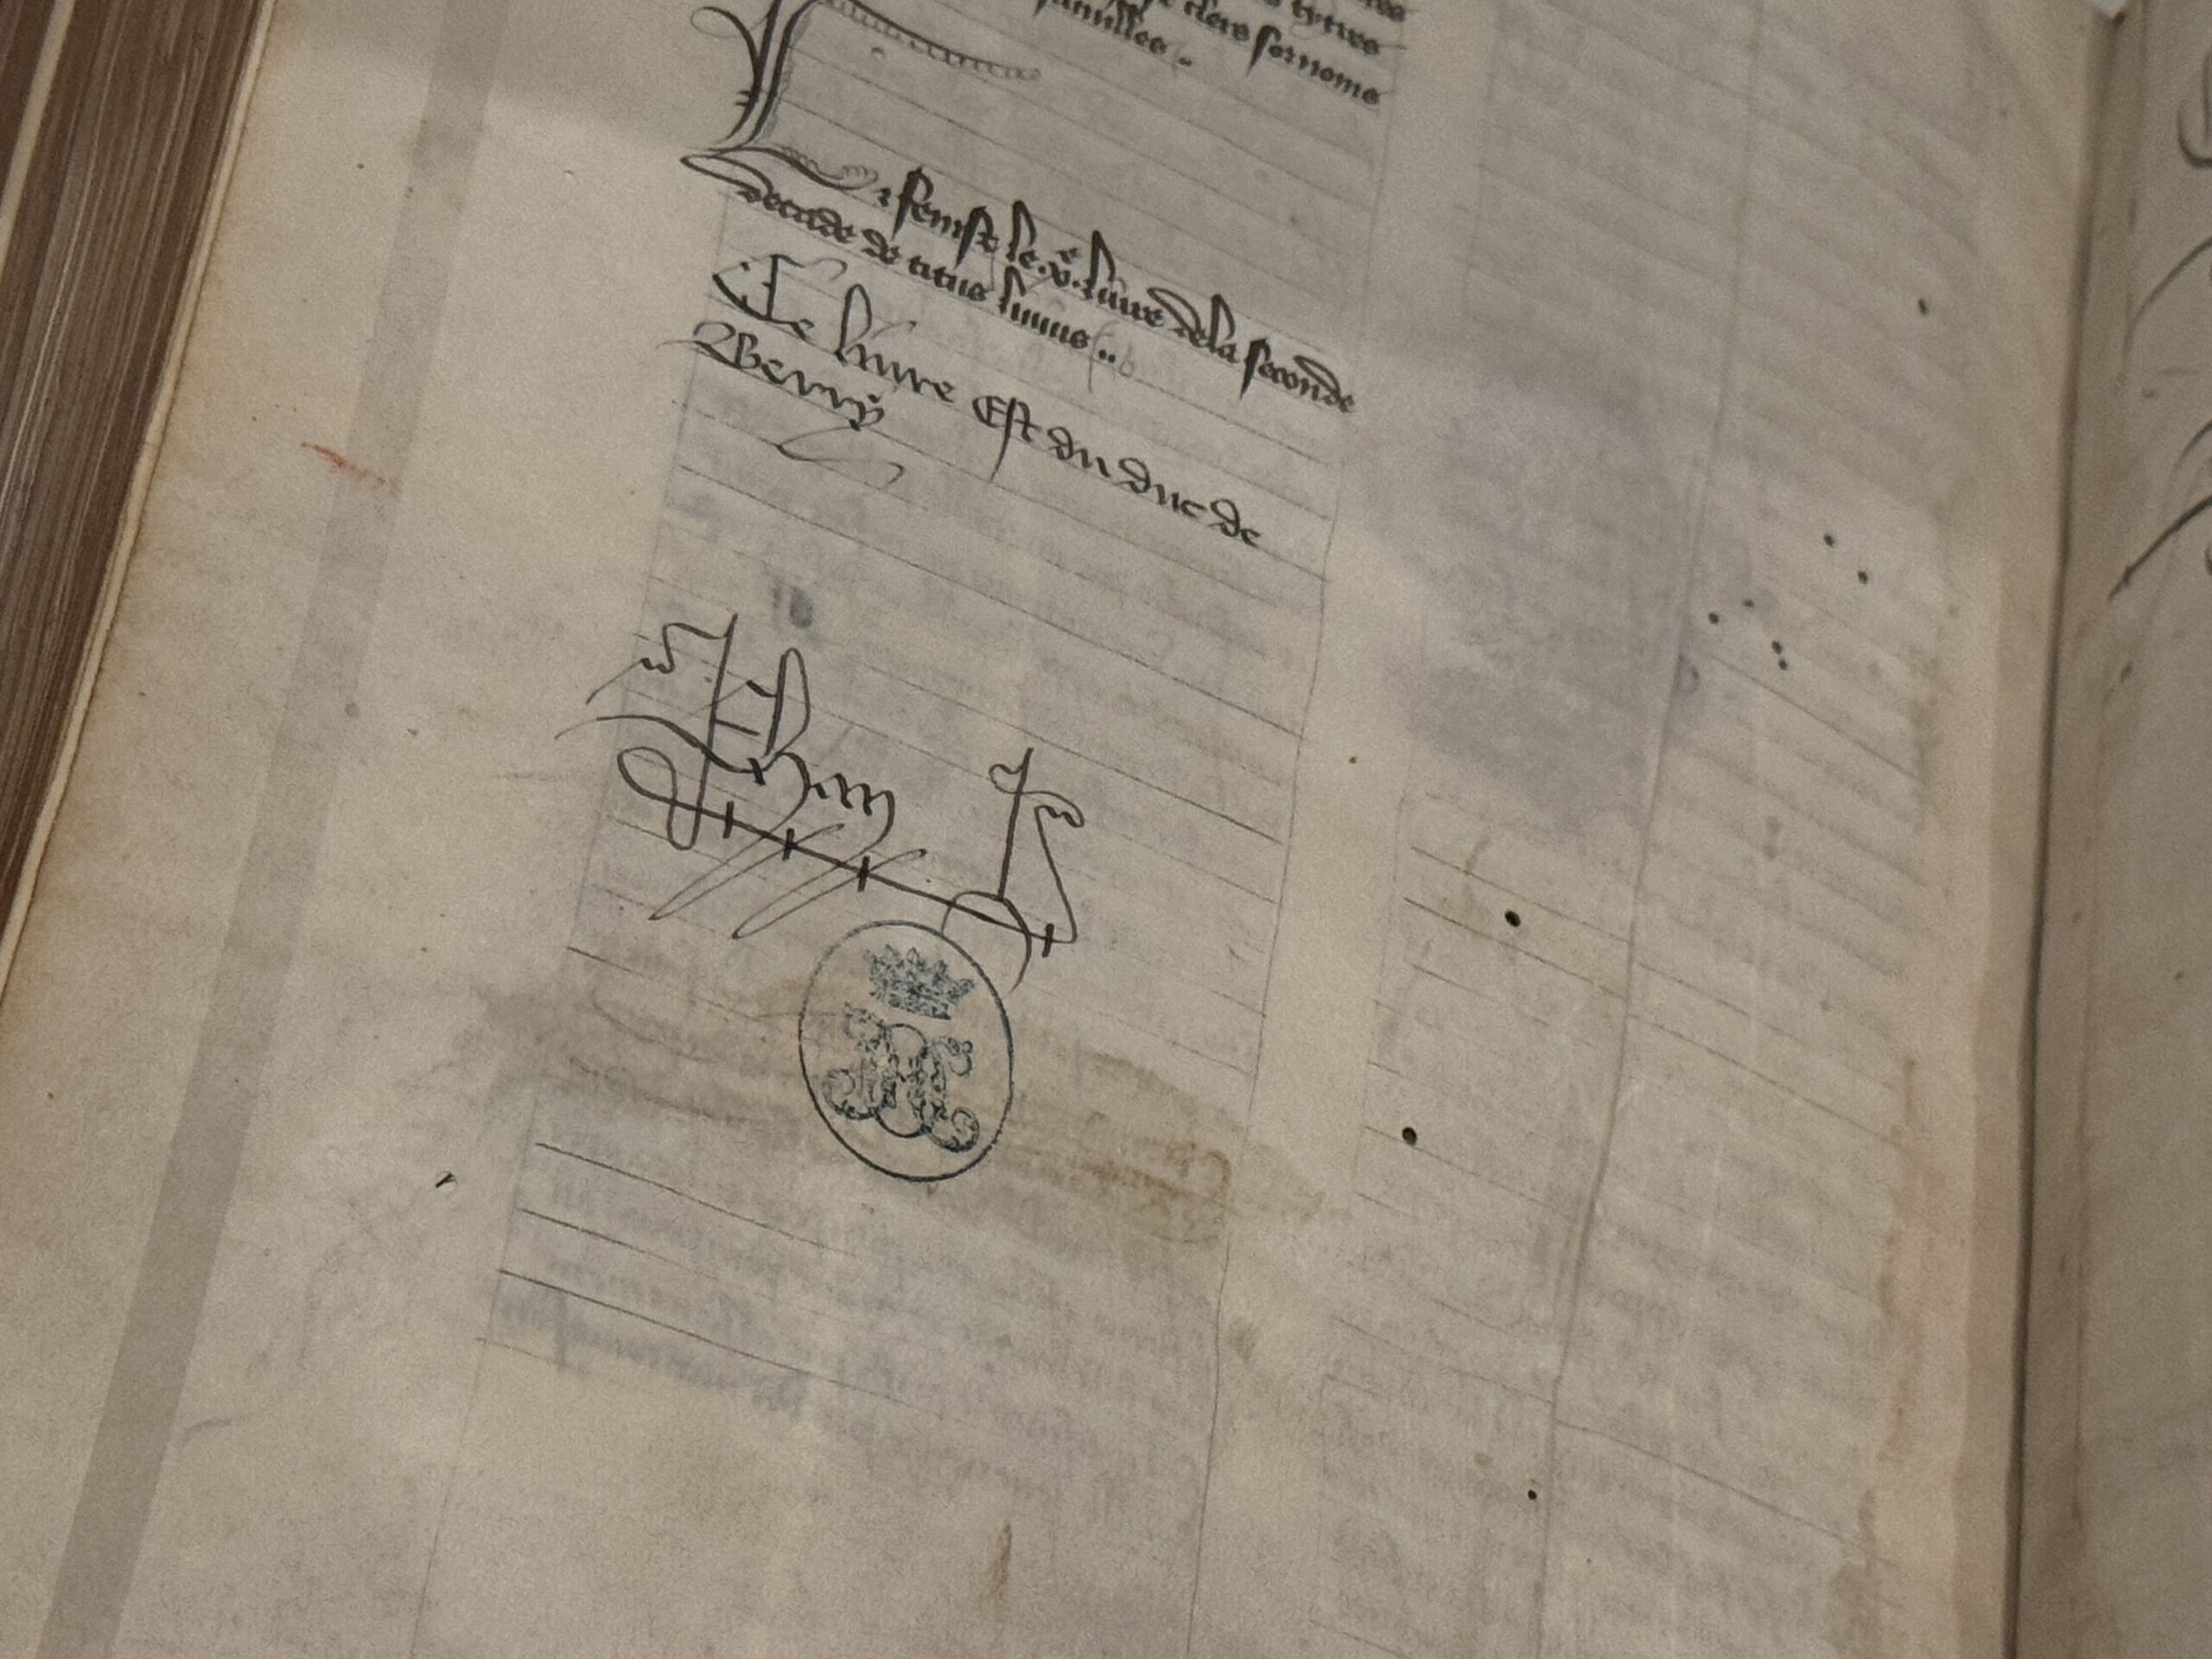 tytres
clers sornoms
familles
Ci fenist le .v.e livre dela seconde
decade de titus livius
Ce livre Est du duc de
Berry
Jehan